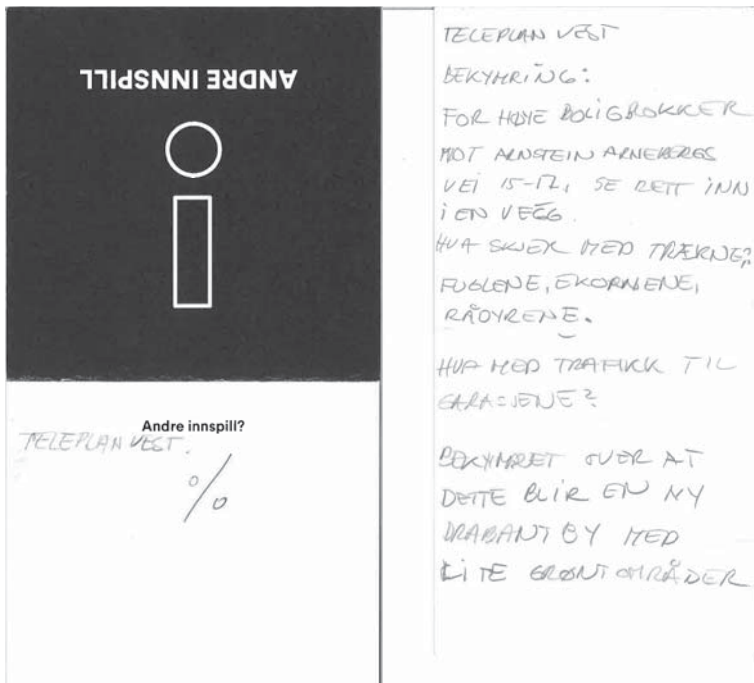 ANDRE INNSPILL
Andre innspill?
TELEPLAN VEST.
%
TELEPLAN VEST
BEKYMRING:
FOR HØYE BOLIGBLOKKER
MOT ARNSTEIN ARNEBERGS
VEI 15-17, SE RETT INN
I EN VEGG.
HVA SKJER MED TRÆRNE?
FUGLENE, EKORNENE,
RÅDYRENE.
HVA MED TRAFIKK TIL
GARASJENE?
BEKYMRET OVER AT
DETTE BLIR EN NY
DRABANT BY MED
LITE GRØNTOMRÅDER